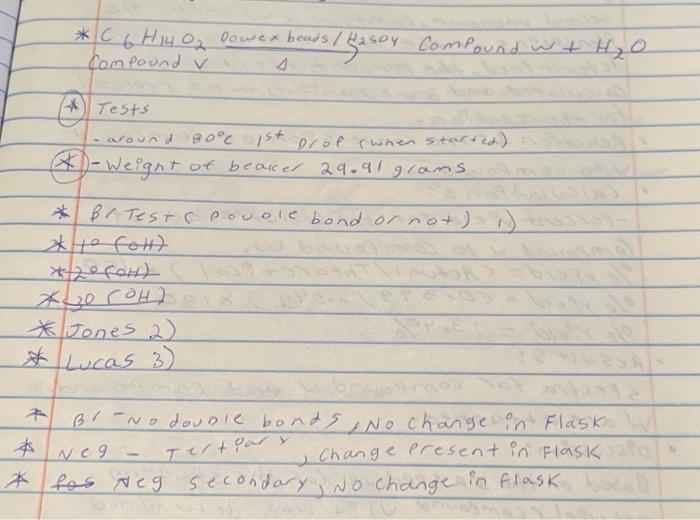 * C6H14O2 Dowex beads/H2SO4 Compound W + H2O
Compound V Δ
* Tests
- around 80°C 1st Drop (when started)
* - Weight of beaker 29.91 grams
* Br Test (Double bond or not) 1)
* 1° (OH)
* 2° (OH)
* 3° (OH)
* Jones 2)
* Lucas 3)
* Br - No double bonds, No change in Flask
* Neg - Tertiary, change present in Flask
* Pos Neg secondary, No change in flask